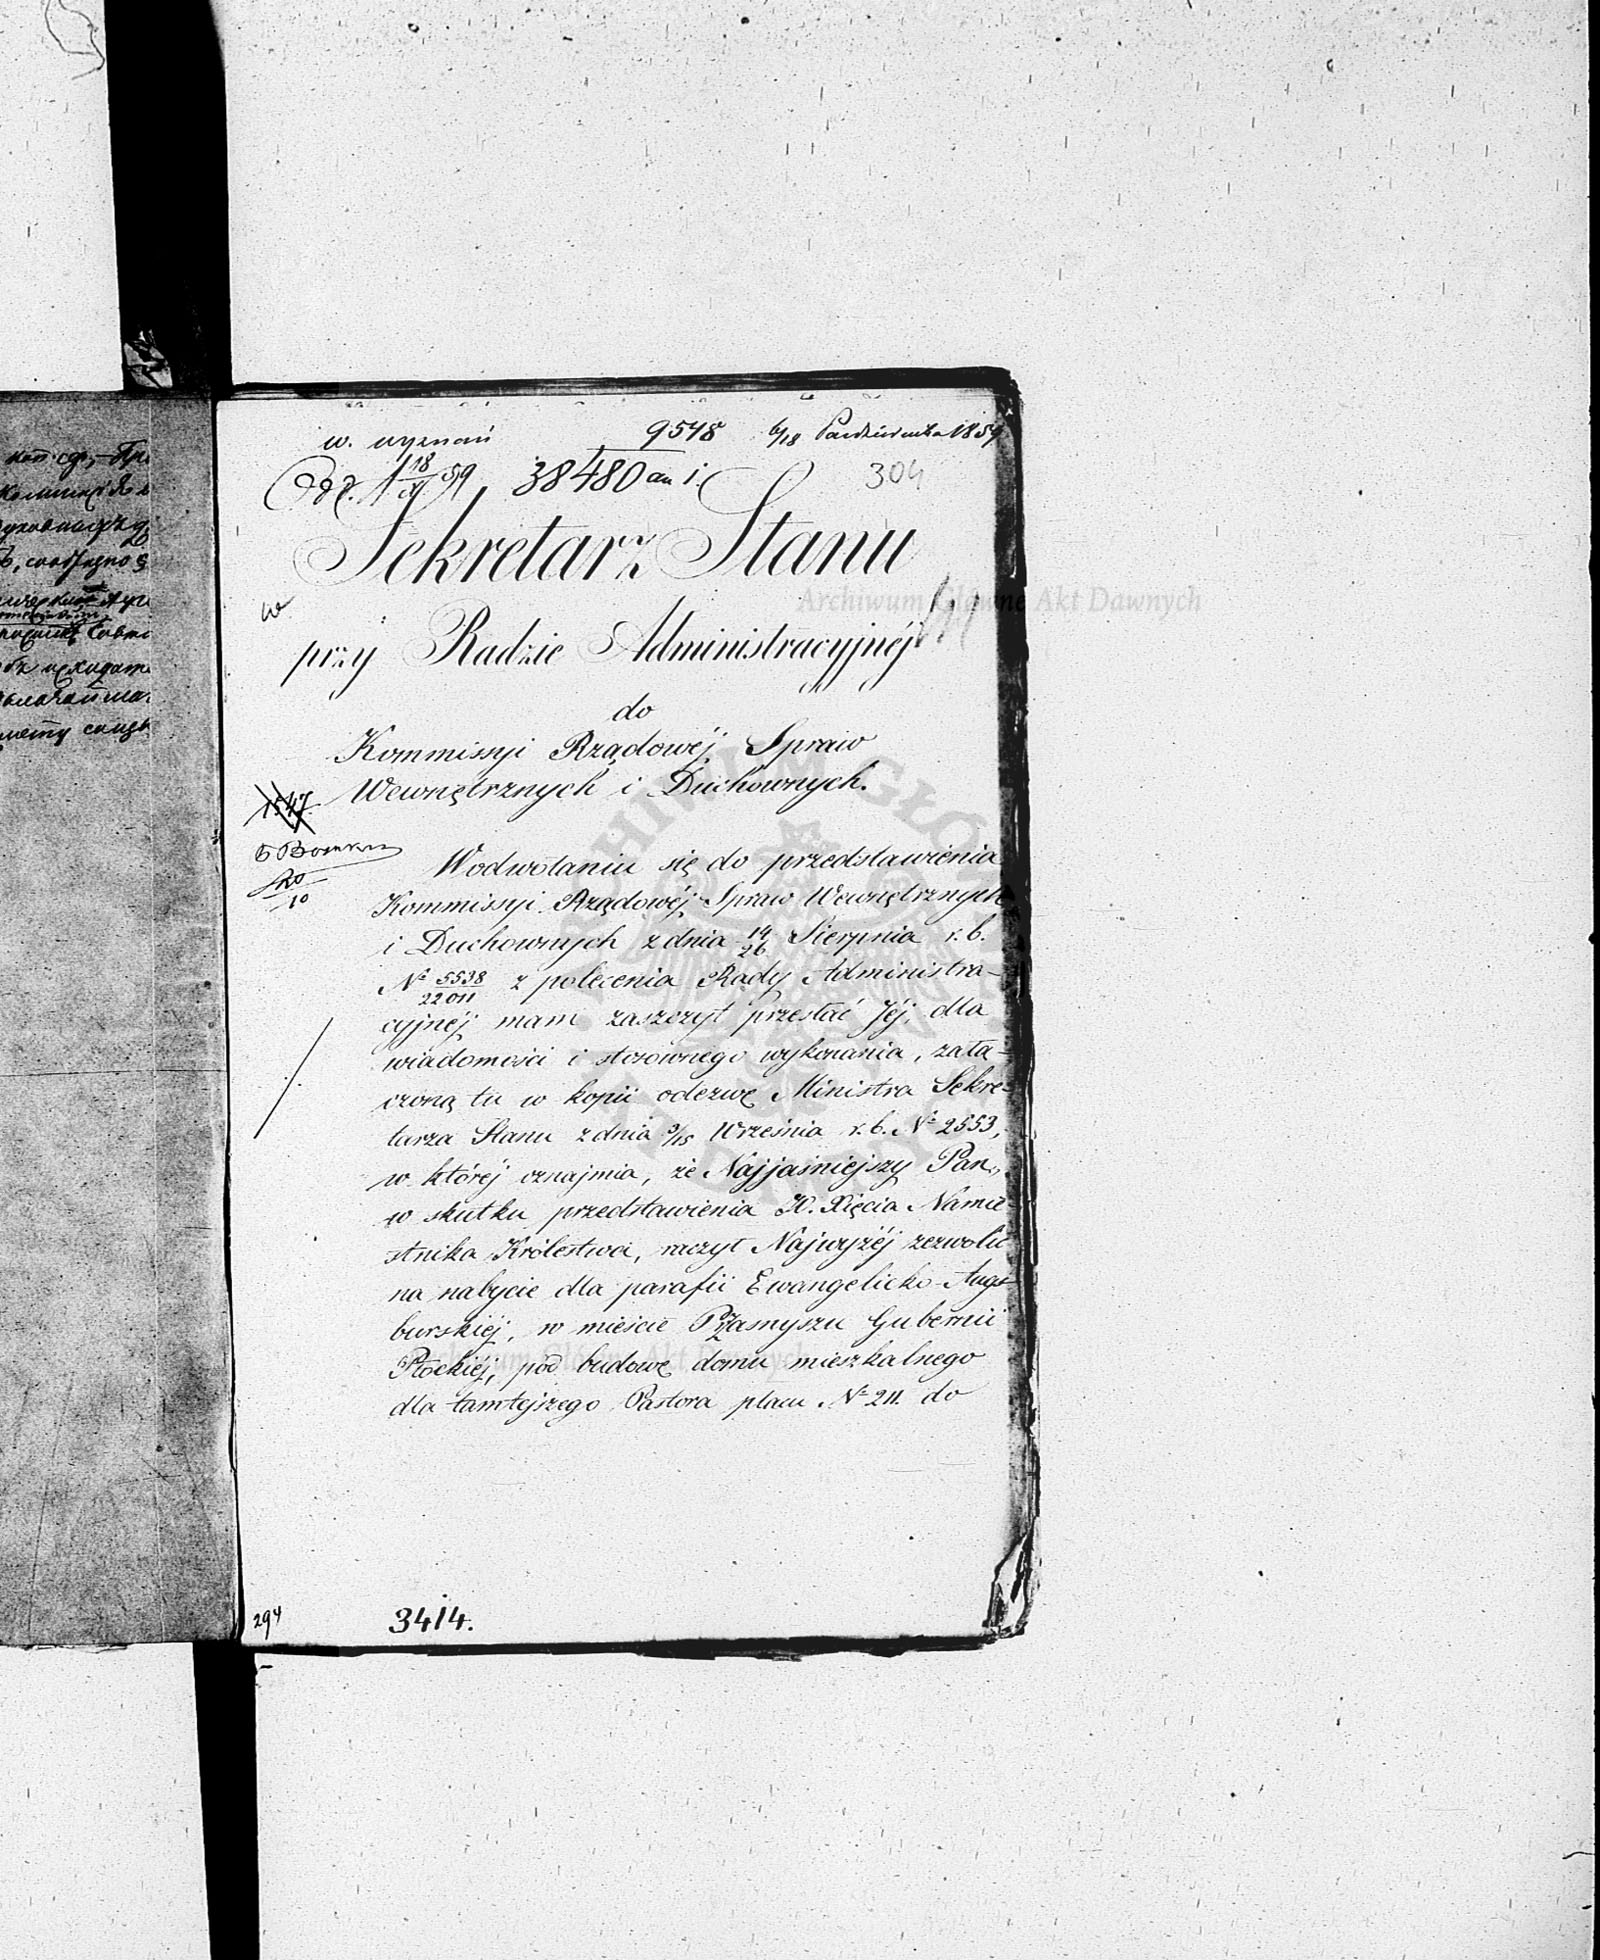 w. wyznań 9548 6/18 Października 1859
Odd. 1 18/XI 59 38480 an 1. 304
Sekretarz Stanu
przy Radzie Administracyjnéj
do
Kommissyi Rządowéj Spraw
Wewnętrznych i Duchownych.
1547.
20/10
W odwołaniu się do przedstawienia
Kommissyi Rządowéj Spraw Wewnętrznych
i Duchownych z dnia 14/26 Sierpnia r. b.
№ 5538/22011 z polecenia Rady Administra-
cyjnéj mam zaszczyt przesłać Jéj, dla
wiadomości i stosownego wykonania, załą-
czoną tu w kopii odezwę Ministra Sekre-
tarza Stanu z dnia 3/15 Września r. b. № 2553,
w któréj oznajmia, że Najjaśniejszy Pan,
w skutku przedstawienia JO. Xięcia Namie-
stnika Królestwa, raczył Najwyżéj zezwolić
na nabycie dla parafii Ewangelicko-Augs-
burskiéj, w mieście Przasnyszu Gubernii
Płockiéj, pod budowę domu mieszkalnego
dla tamtejszego Pastora placu № 211. do
294 3414.
Archiwum Główne Akt Dawnych
Archiwum Główne Akt Dawnych